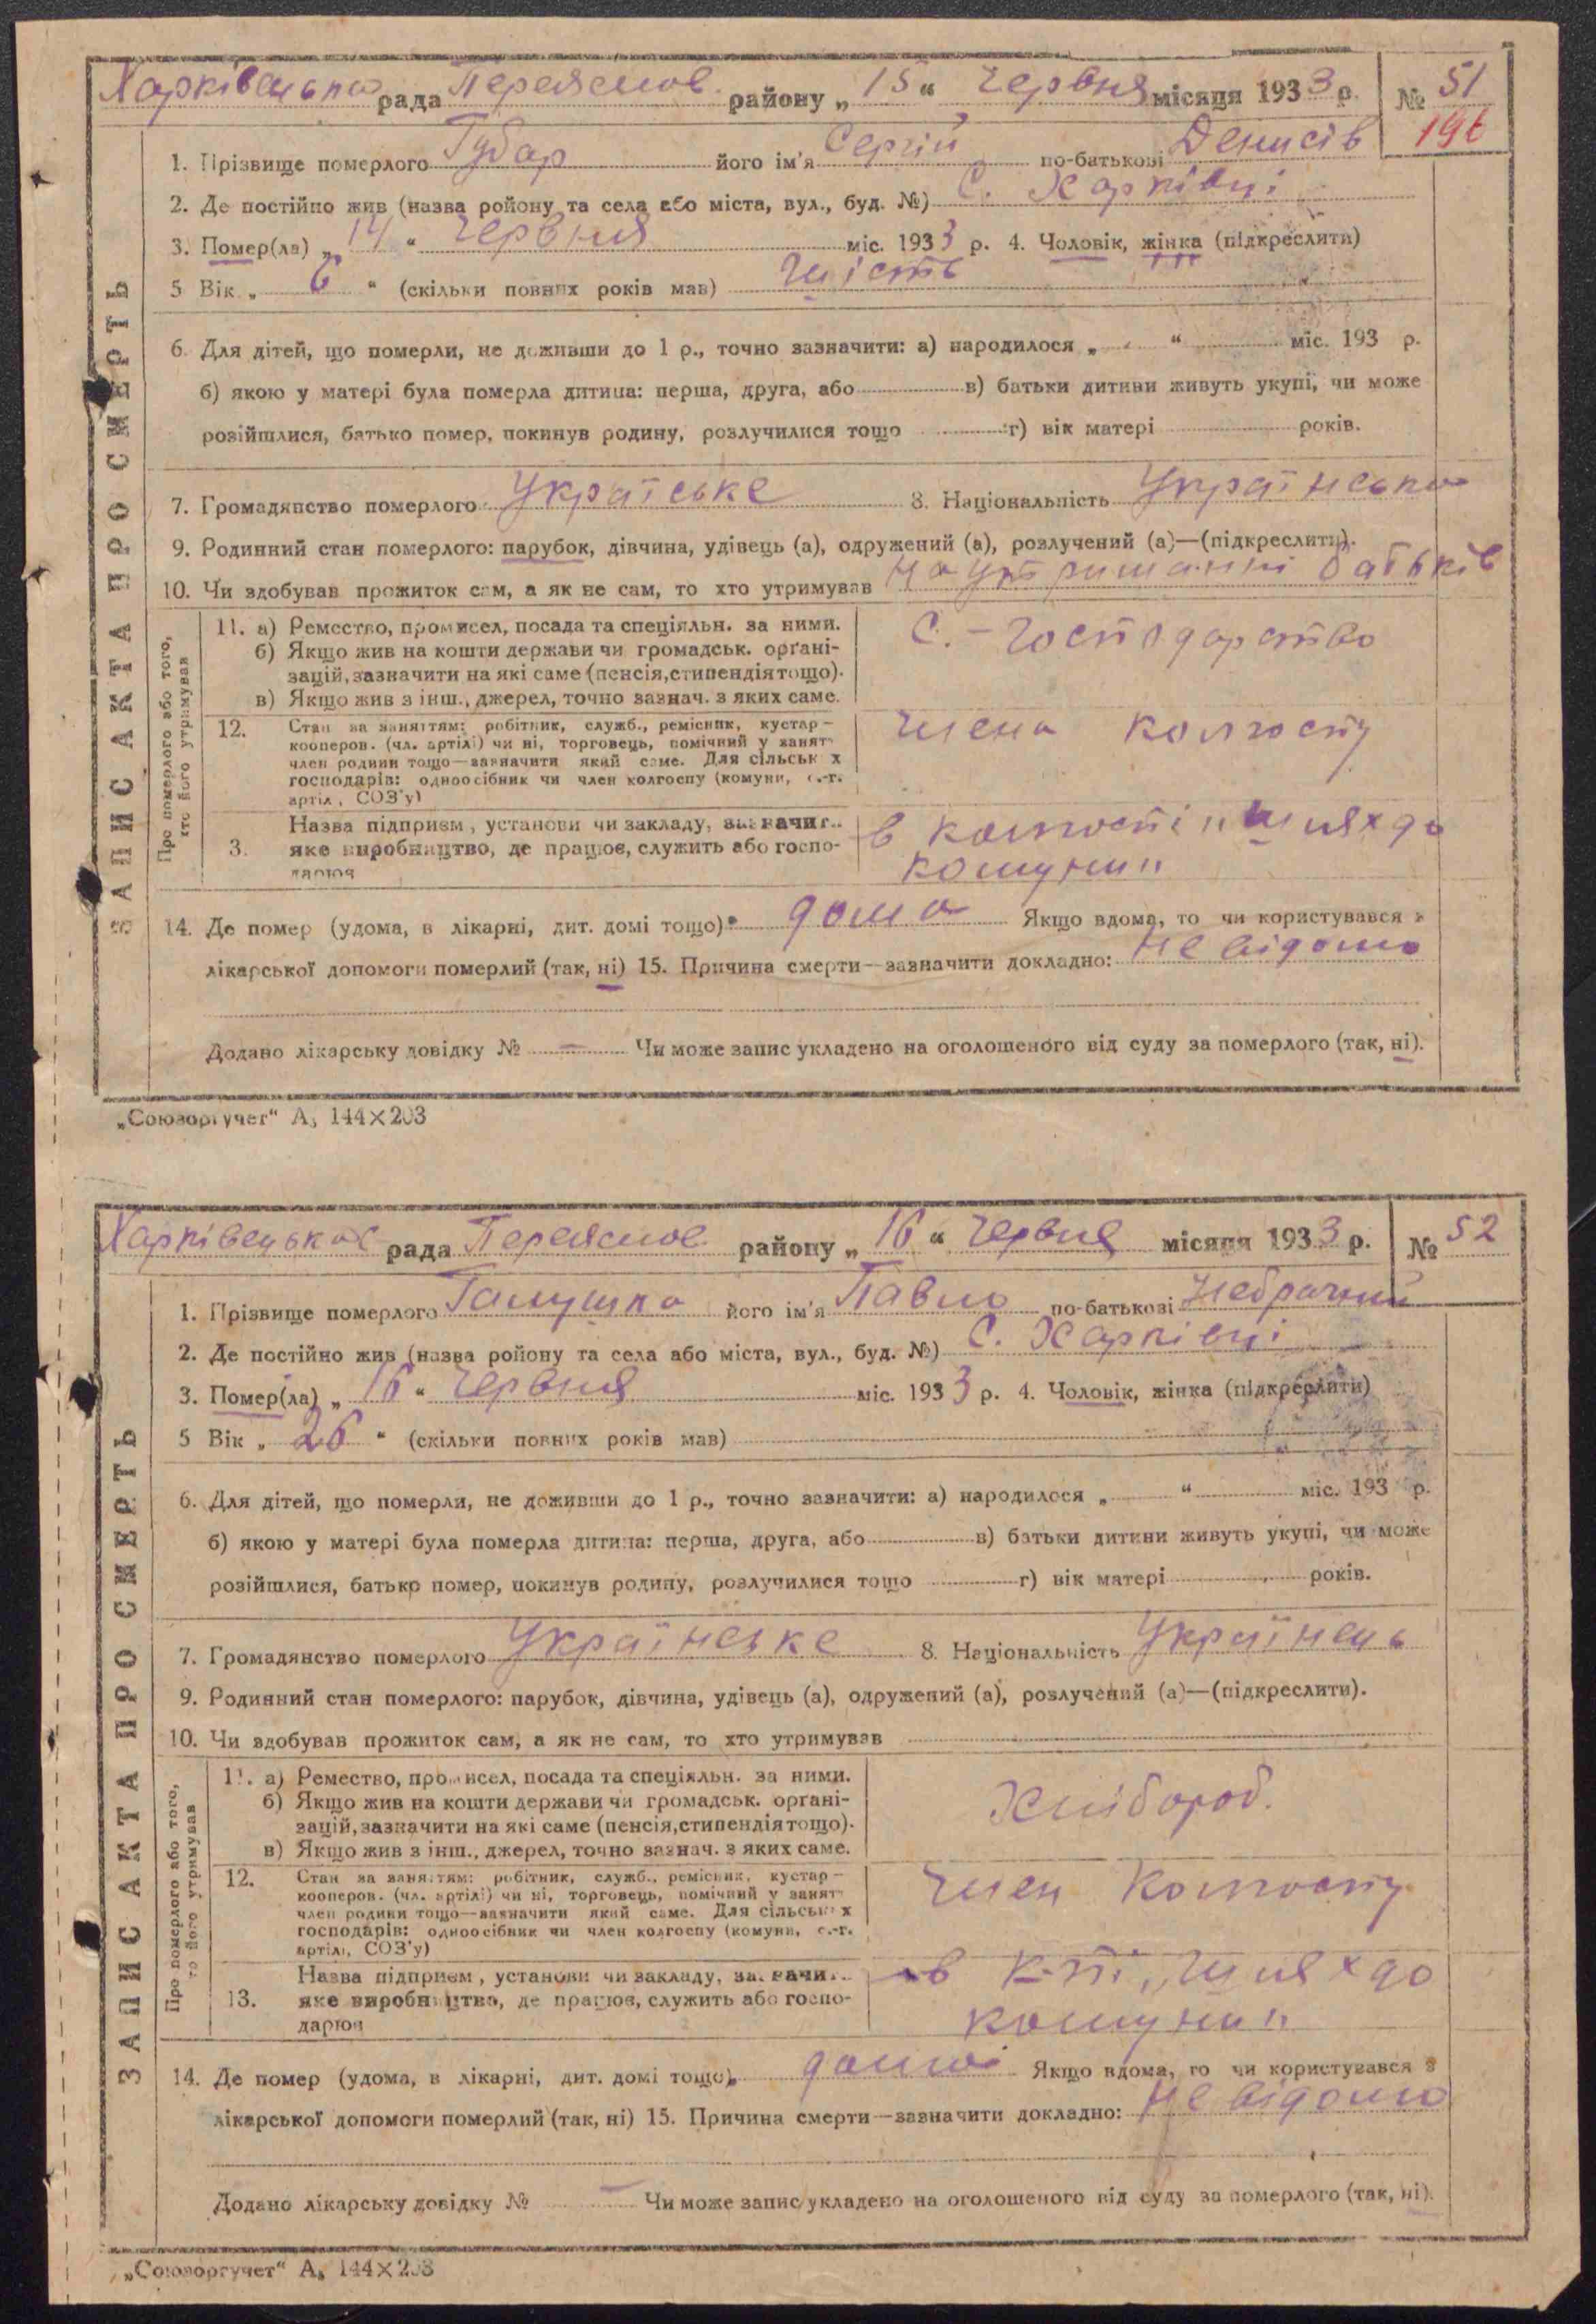 Харківецька рада Переяслов. району „15“ Червня місяця 1933 р. № 51
196
1. Прізвище померлого Губар його ім'я Сергій по-батькові Денисів
2. Де постійно жив (назва ройону та села або міста, вул., буд. №) С. Харківці
3. Помер(ла) „14“ Червня міс. 1933 р. 4. Чоловік, жінка (підкреслити)
5 Вік „6“ (скільки повних років мав) Шість
6. Для дітей, що померли, не доживши до 1 р., точно зазначити: а) народилося „ “ міс. 193 р.
б) якою у матері була померла дитина: перша, друга, або в) батьки дитини живуть укупі, чи може
розійшлися, батько помер, покинув родину, розлучилися тощо г) вік матері років.
7. Громадянство померлого Україське 8. Національність Українська
9. Родинний стан померлого: парубок, дівчина, удівець (а), одружений (а), розлучений (а)—(підкреслити).
10. Чи здобував прожиток сам, а як не сам, то хто утримував На утриманні батьків
ЗАПИС АКТА ПРО СМЕРТЬ
Про померлого або того, хто його утримував
11. а) Ремество, промисел, посада та спеціяльн. за ними.
б) Якщо жив на кошти держави чи громадськ. орґані-
зацій, зазначити на які саме (пенсія, стипендія тощо).
в) Якщо жив з інш., джерел, точно зазнач. з яких саме.
С.-Господарство
12. Стан за заняттям: робітник, служб., ремісник, кустар—
кооперов. (чл. артілі) чи ні, торговець, помічний у занят
член родини тощо—зазначити який саме. Для сільськ х
господарів: одноосібник чи член колгоспу (комуни, с.-г.
артіл, СОЗ'у)
Члена колгоспу
Назва підприєм, установи чи закладу, зазначит..
3. яке виробництво, де працює, служить або госпо-
дарює
в колгоспі „Шлях до
комуни"
14. Де помер (удома, в лікарні, дит. домі тощо) дома Якщо вдома, то чи користувався з
лікарської допомоги померлий (так, ні) 15. Причина смерти—зазначити докладно: Не відомо
Додано лікарську довідку № — Чи може запис укладено на оголошеного від суду за померлого (так, ні).
„Союзоргучет“ А₅ 144×203
Харківецька рада Переяслов району „16“ Червня місяця 1933 р. № 52
1. Прізвище померлого Галушка його ім'я Павло по-батькові Небрачний
2. Де постійно жив (назва ройону та села або міста, вул., буд. №) С. Харківці
3. Помер(ла) „16“ Червня міс. 1933 р. 4. Чоловік, жінка (підкреслити)
5 Вік „26“ (скільки повних років мав)
6. Для дітей, що померли, не доживши до 1 р., точно зазначити: а) народилося „ “ міс. 193 р.
б) якою у матері була померла дитина: перша, друга, або в) батьки дитини живуть укупі, чи може
розійшлися, батько помер, покинув родину, розлучилися тощо г) вік матері років.
7. Громадянство померлого Українське 8. Національність Українець
9. Родинний стан померлого: парубок, дівчина, удівець (а), одружений (а), розлучений (а)—(підкреслити).
10. Чи здобував прожиток сам, а як не сам, то хто утримував
ЗАПИС АКТА ПРО СМЕРТЬ
Про померлого або того, то його утримував
11. а) Ремество, промисел, посада та спеціяльн. за ними.
б) Якщо жив на кошти держави чи громадськ. орґані-
зацій, зазначити на які саме (пенсія, стипендія тощо).
в) Якщо жив з інш., джерел, точно зазнач. з яких саме.
Хлібороб.
12. Стан за заняттям: робітник, служб., ремісник, кустар—
кооперов. (чл. артілі) чи ні, торговець, помічний у занят
член родини тощо—зазначити який саме. Для сільськ х
господарів: одноосібник чи член колгоспу (комуни, с.-г.
артілі, СОЗ'у)
Член Колгоспу
Назва підприєм, установи чи закладу, зазначи...
13. яке виробництво, де працює, служить або госпо-
дарює
в к-пі „Шлях до
комуни"
14. Де помер (удома, в лікарні, дит. домі тощо) дома Якщо вдома, то чи користувався з
лікарської допомоги померлий (так, ні) 15. Причина смерти—зазначити докладно: Не відомо
Додано лікарську довідку № — Чи може запис укладено на оголошеного від суду за померлого (так, ні).
„Союзоргучет“ А₅ 144×203